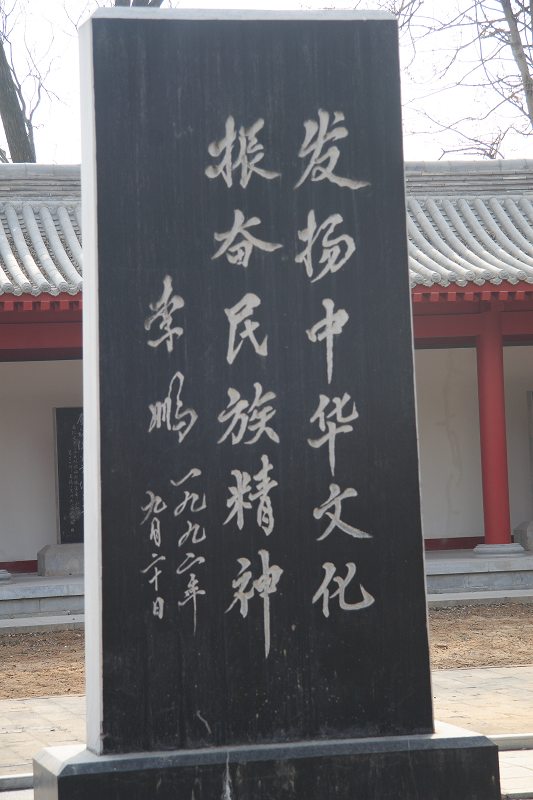 发扬中华文化
振奋民族精神
李鹏
一九九一年
九月二十日